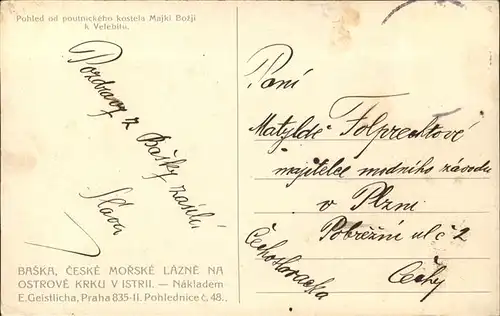 Pohled od poutnického kostela Majki Boží
k Velebitu.
Pozdravy z
Bašky zasílá
Sláva
BAŠKA, ČESKÉ MOŘSKÉ LÁZNĚ NA
OSTROVĚ KRKU V ISTRII. — Nákladem
E. Geistlicha, Praha 835-II. Pohlednice č. 48.
Paní
Matyldě Folprechtové
majitelce modního závodu
v Plzni
Pobřežní ul č 2
Čechoslovacka
Čechy